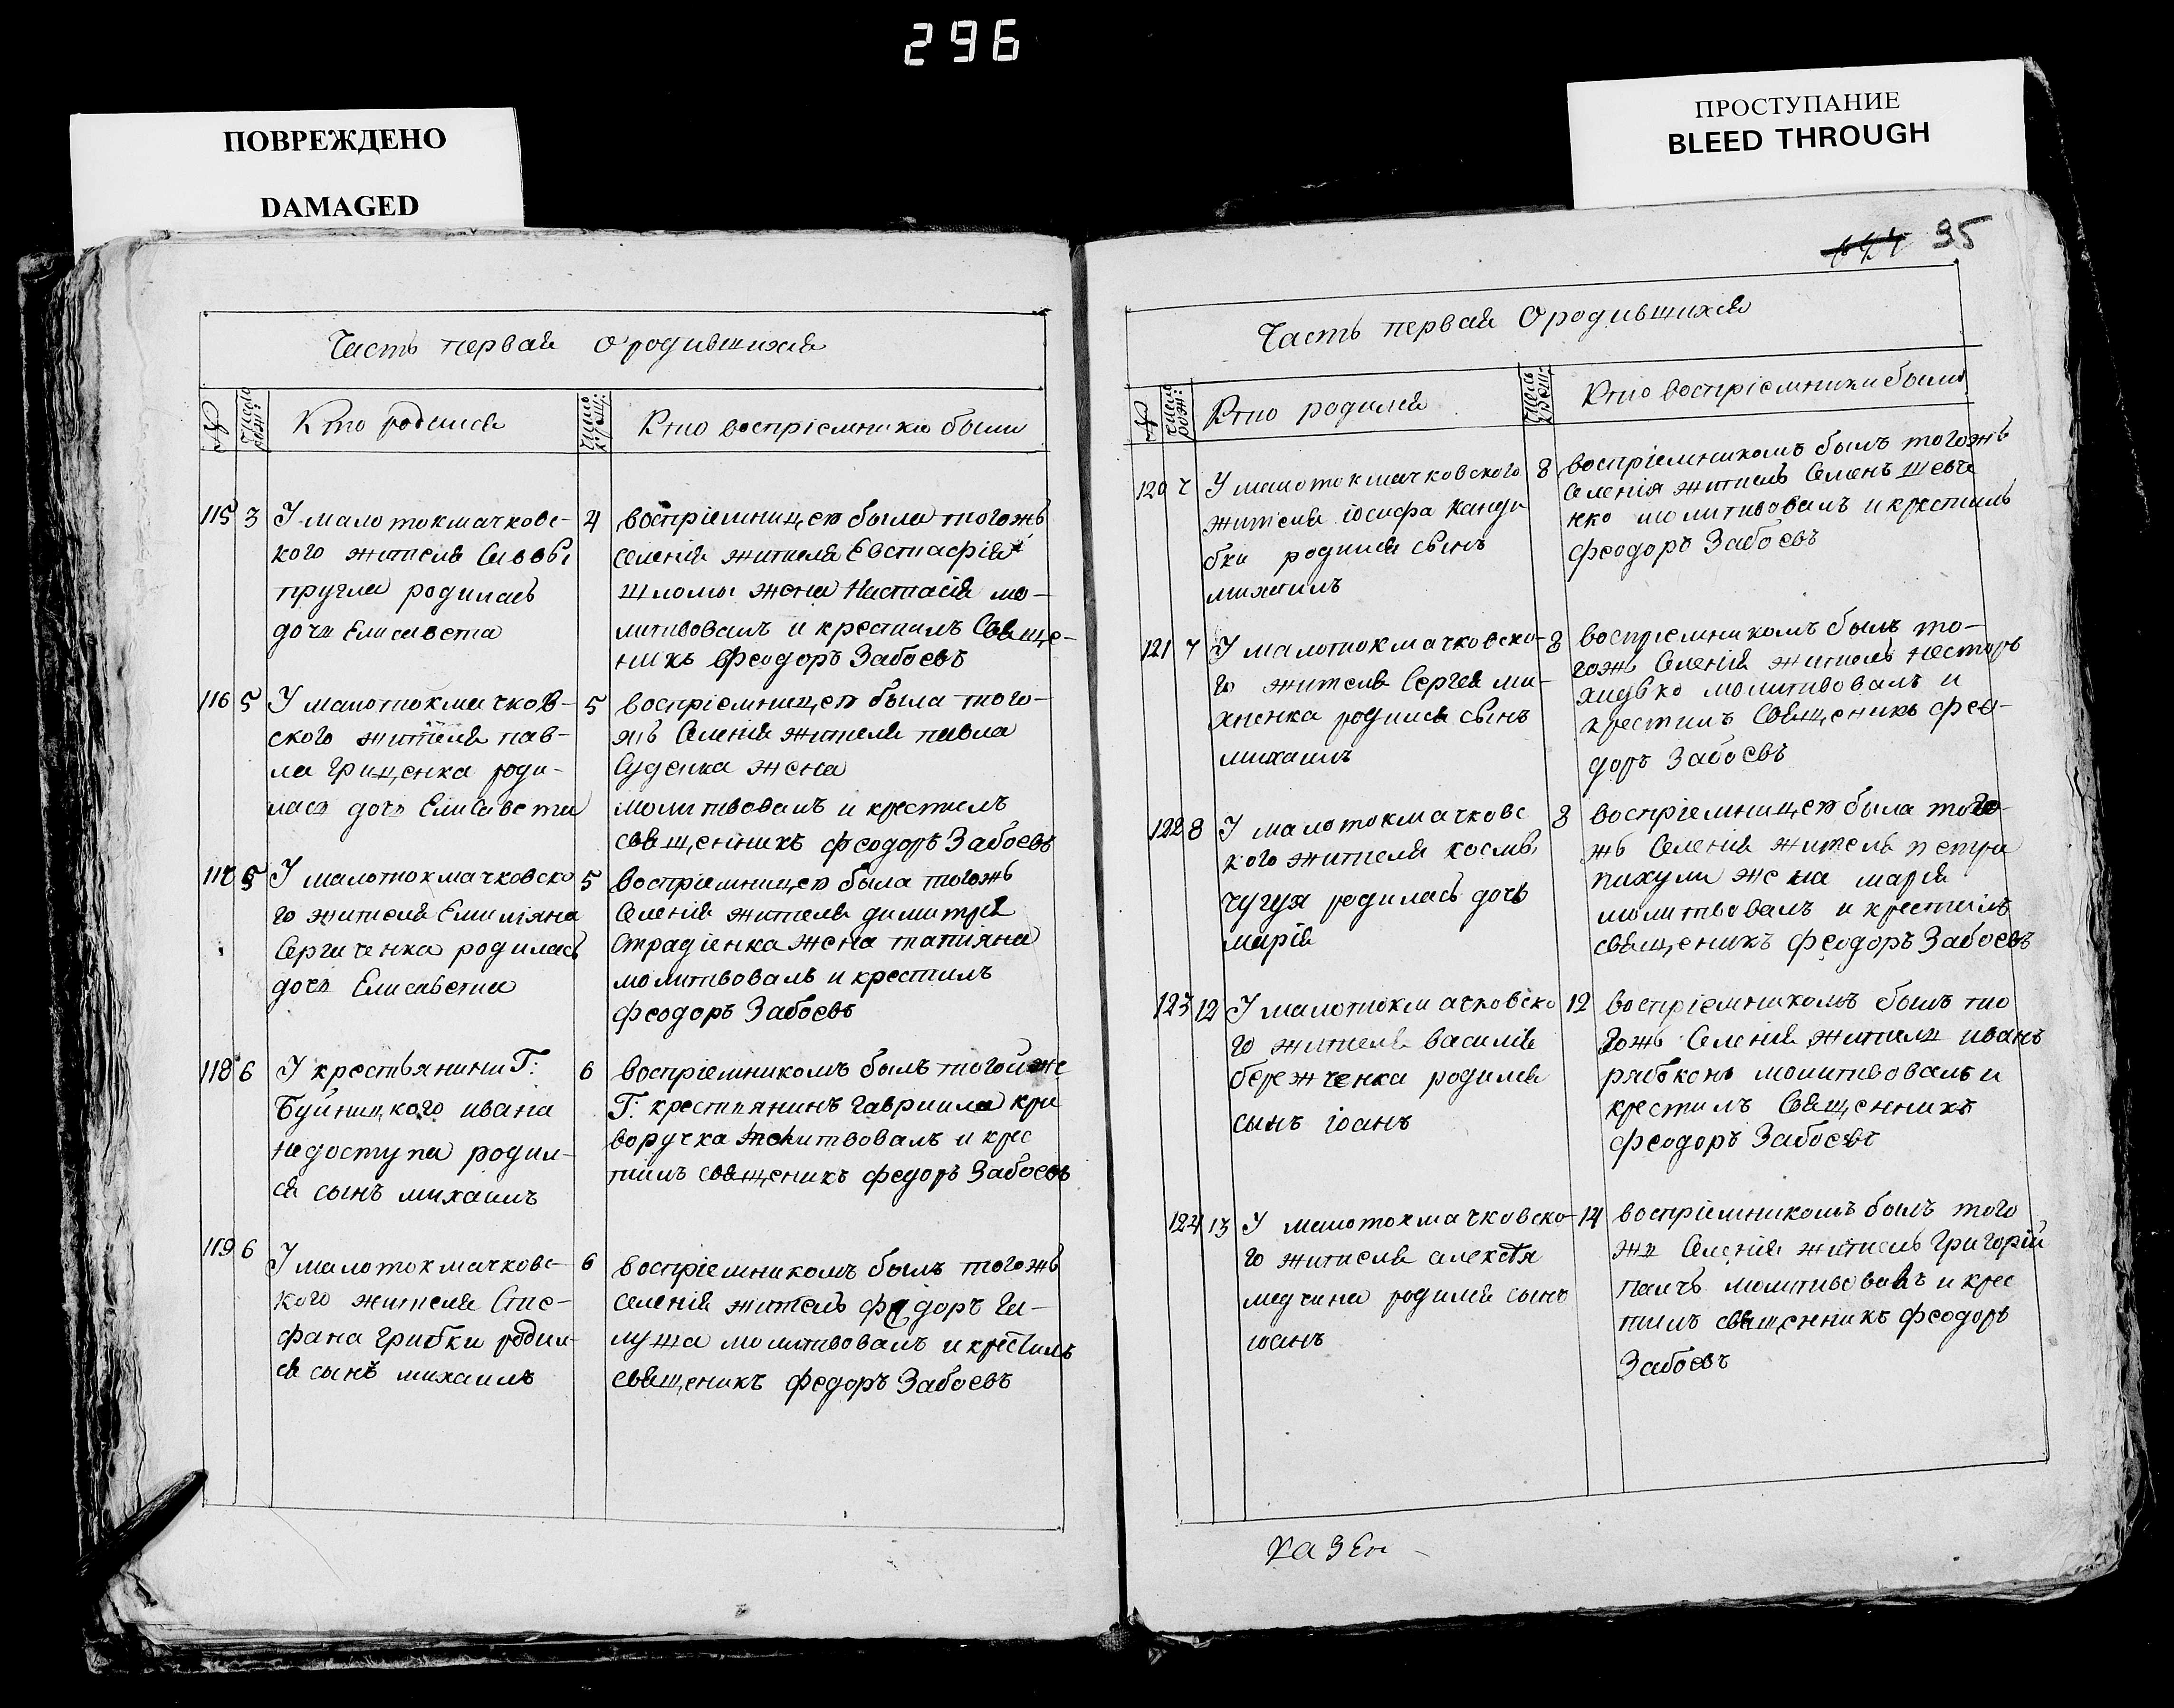 296
ПОВРЕЖДЕНО
DAMAGED
ПРОСТУПАНИЕ
BLEED THROUGH
95
Часть первая О родившихся
№
Число рож:
Кто родился
Число крещ:
Кто воспріемники были
115 3 У малотокмачковс-
кого жителя Саввы
пругла родилась
дочь Елисавета
4 воспріемницею была тогожъ
селенія жителя Евстафія
шломы жена Настасія мо-
литвовалъ и крестилъ Свяще-
никъ Феодоръ Забоевъ
116 5 У малотокмачков-
ского жителя пав-
ла Грищенка роди-
лась дочь Елисавета
5 воспріемницею была того-
жъ Селенія жителя павла
Суденка жена
молитвовалъ и крестилъ
священникъ феодоръ Забоевъ
117 5 У малотокмачковско
го жителя Емиліяна
Сергиченка родилась
дочь Елисавета
5 воспріемницею была тогожъ
Селенія жителя димитрія
Страдіенка жена татіяна
молитвовалъ и крестилъ
феодоръ Забоевъ
118 6 У крестьянина Г:
Буйницкого ивана
недоступа родил-
ся сынъ михаилъ
6 воспріемникомъ былъ тогойже
Г: крестьянинъ гавриила кри
воручка молитвовалъ и крес
тилъ священикъ федоръ Забоевъ
119 6 У малотокмачковс-
кого жителя Сте-
фана грибки родил-
ся сынъ михаилъ
6 воспріемникомъ былъ тогожъ
селенія житель федоръ Га-
луша молитвовалъ и крестилъ
священикъ федоръ Забоевъ
Часть первая О родившихся
№
Число рож:
Кто родился
Число крещ:
Кто воспріемники были
120 7 У малотокмачковского
жителя іосифа Канди
бки родился сынъ
михаилъ
8 воспріемникомъ былъ тогожъ
Селенія житель Семенъ шевче
нко молитвовалъ и крестилъ
феодоръ Забоевъ
121 7 У малотокмачковско-
го жителя Сергея ми-
хненка родился сынъ
михаилъ
8 воспріемникомъ былъ то-
гожъ Селенія житель несторъ
хидько молитвовалъ и
крестилъ Священикъ фео-
доръ Забоевъ
122 8 У малотокмачковс
кого жителя космы
чугуя родилась дочь
марія
8 воспріемницею была того-
жъ Селенія жителя петра
пихули жена марія
молитвовалъ и крестилъ
священикъ феодоръ Забоевъ
123 12 У малотокмачковско
го жителя василія
бережченка родился
сынъ іоанъ
12 воспріемникомъ былъ то
гожъ Селенія житель иванъ
рябоконь молитвовалъ и
крестилъ Священникъ
феодоръ Забоевъ
124 13 У малотокмачковско-
го жителя алексея
медчина родился сынъ
иоанъ
14 воспріемникомъ былъ того
жъ Селенія житель Григорій
палчъ молитвовалъ и крес
тилъ священникъ феодоръ
Забоевъ
Казен-